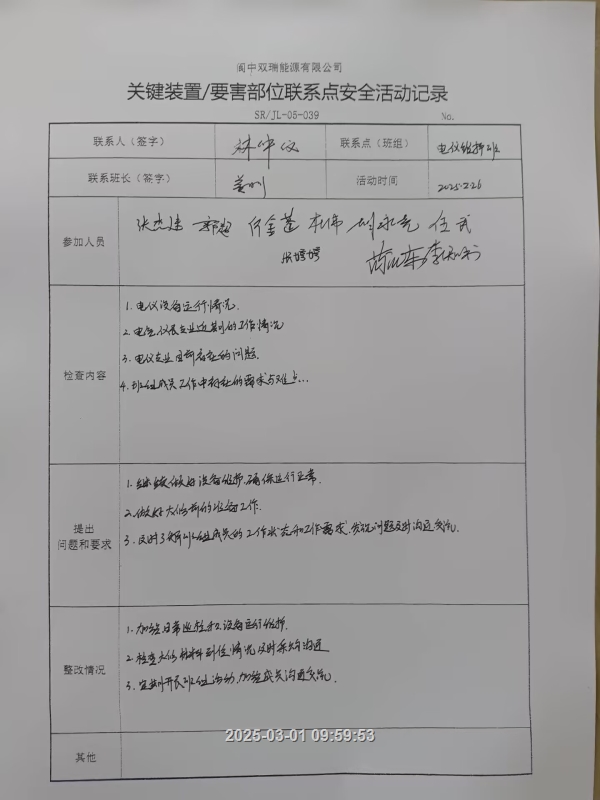 阆中双瑞能源有限公司
关键装置/要害部位联系点安全活动记录
SR/JL-05-039 No.
联系人（签字） 联系点（班组） 电仪维护班
联系班长（签字） 活动时间 2025.2.26
参加人员
检查内容
1. 电仪设备运行情况.
2. 电气仪表专业近期的工作情况
3. 电仪专业目前存在的问题.
4. 班组成员工作中存在的需求与难点...
提出
问题和要求
1. 继续做好设备维护, 确保运行正常.
2. 做好大修前的准备工作.
3. 及时了解班组成员的工作状态和工作需求, 发现问题及时沟通交流.
整改情况
1. 加强日常巡检和设备运行维护.
2. 检查大修材料到位情况及时采购沟通
3. 定期开展班组活动, 加强成员沟通交流.
其他
2025-03-01 09:59:53